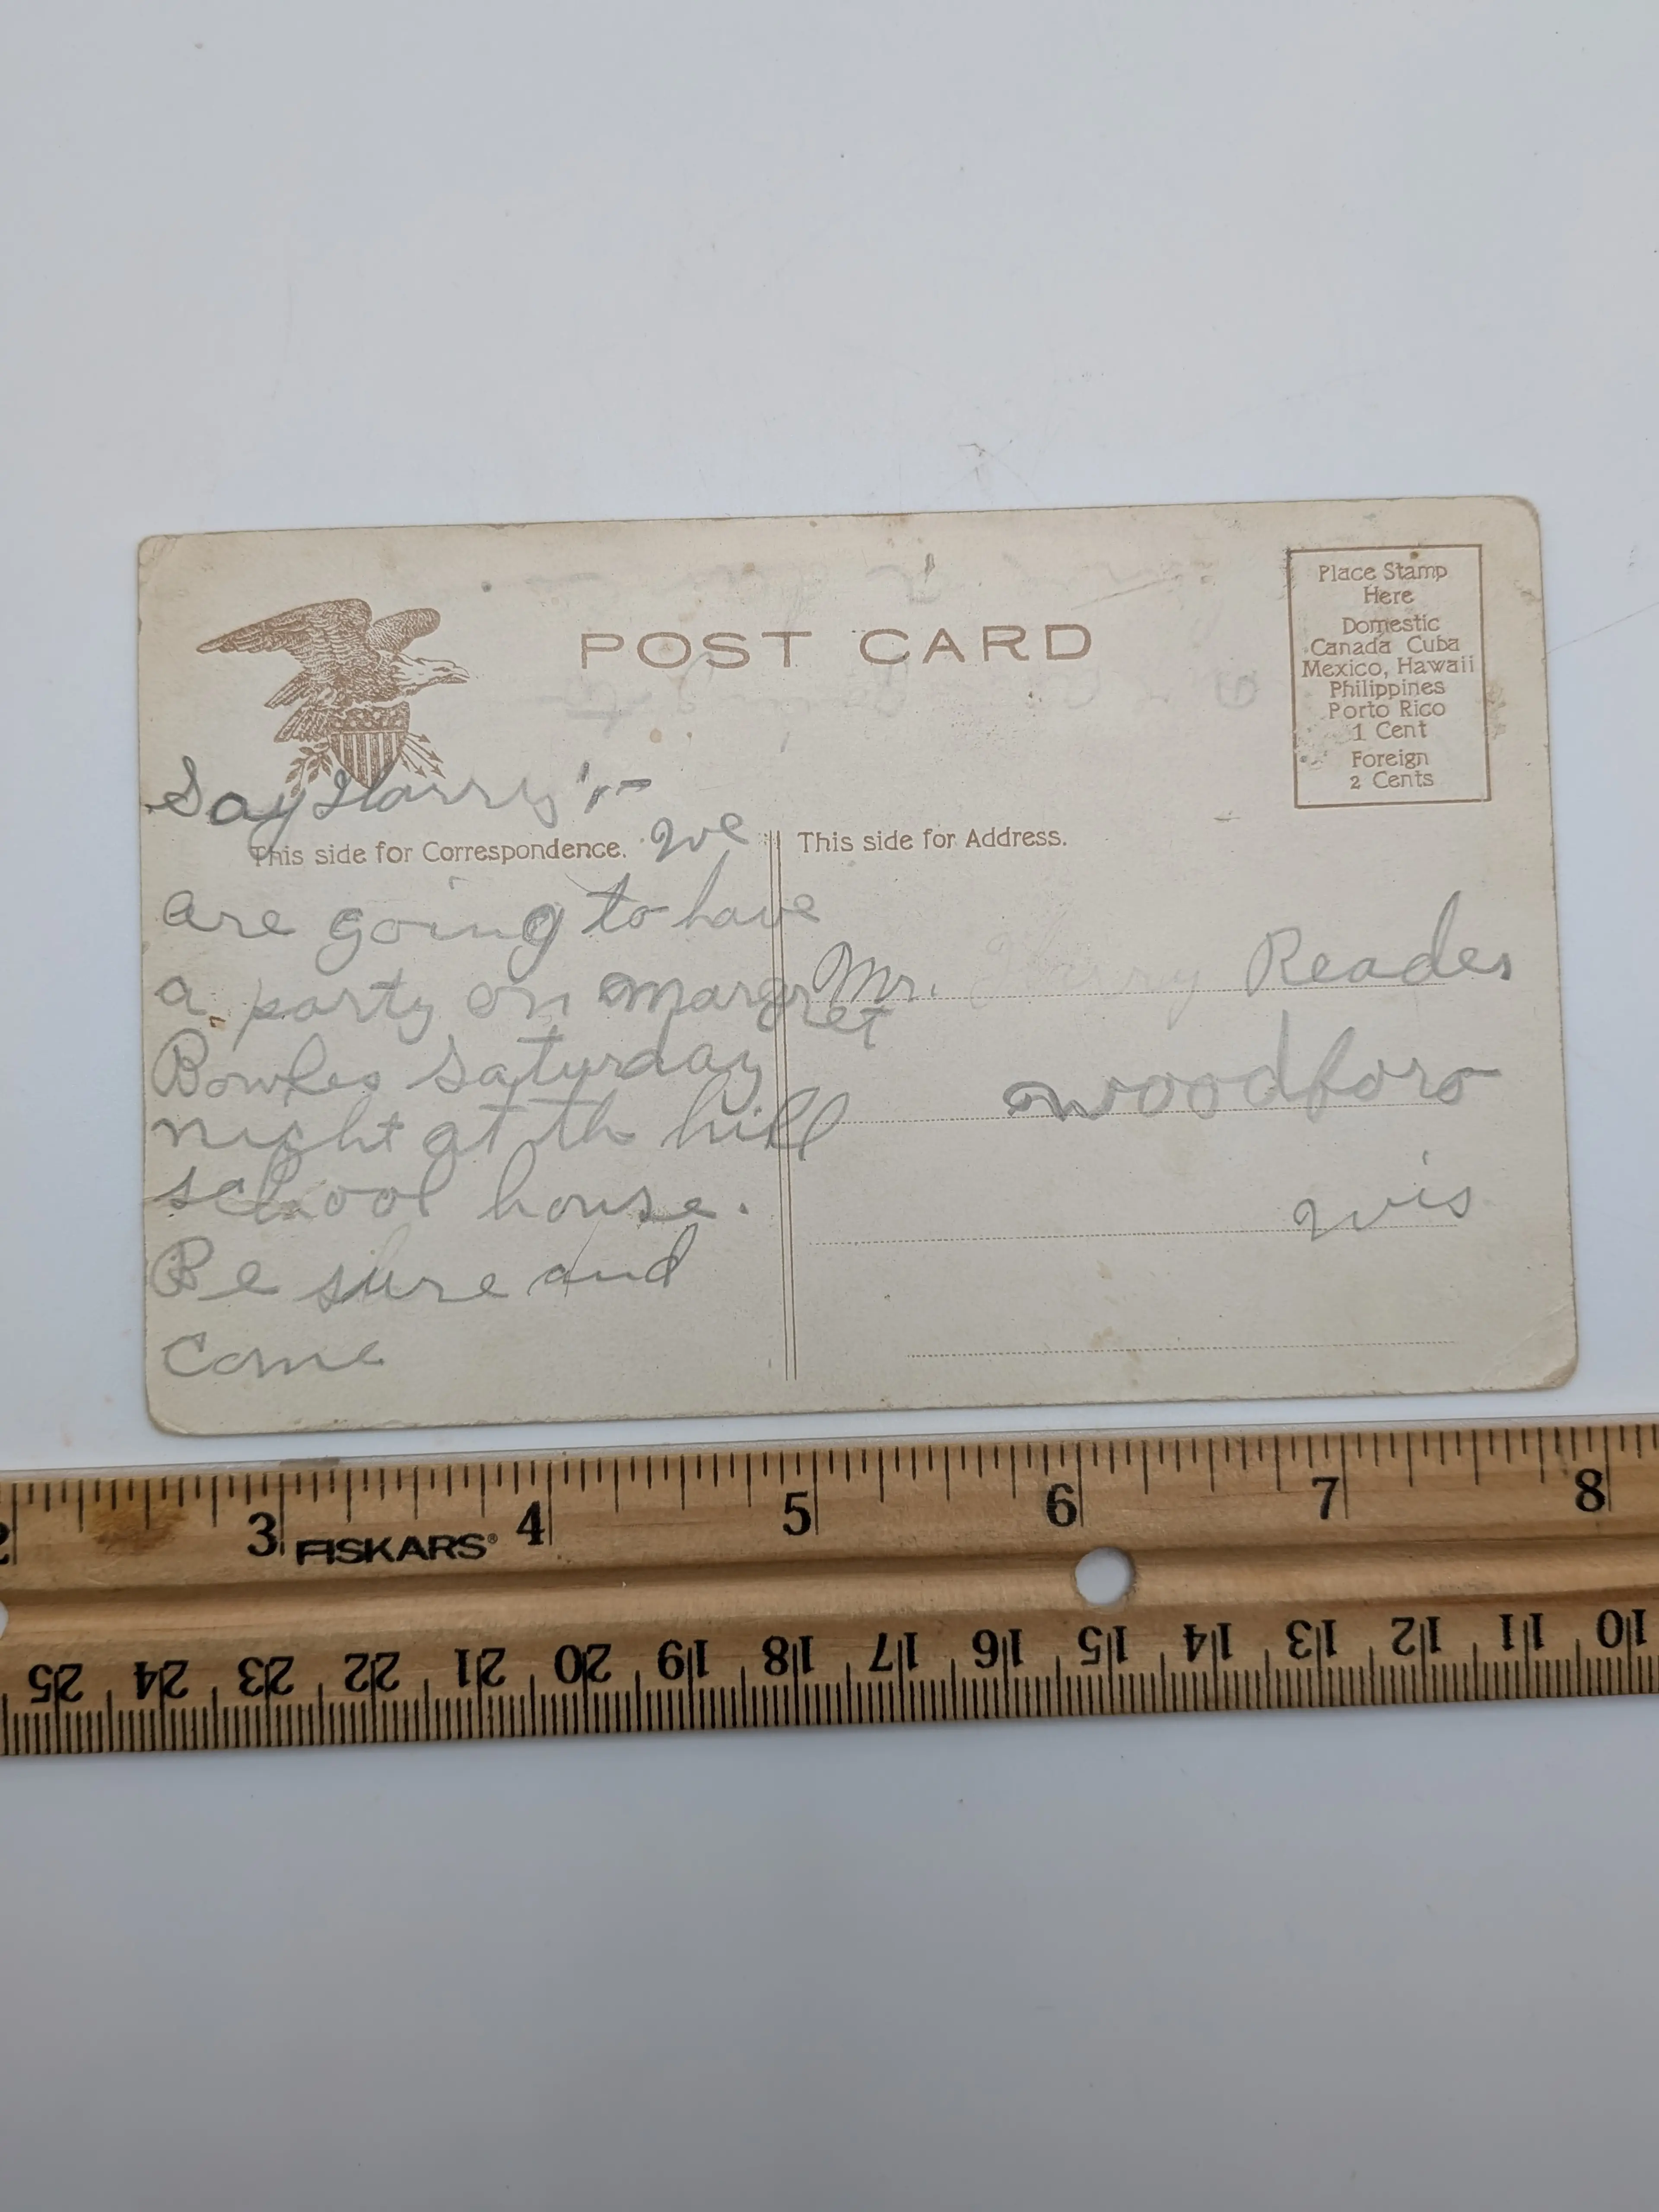 POST CARD
Place Stamp
Here
Domestic
Canada Cuba
Mexico, Hawaii
Philippines
Porto Rico
1 Cent
Foreign
2 Cents
Say Harry :-
This side for Correspondence. We
are going to have
a party on margret
Bowles saturday
night at th hill
school house.
Be sure and
Come
This side for Address.
Mr. Harry Reades
woodford
wis
2 3 4 5 6 7 8
FISKARS®
25 24 23 22 21 20 19 18 17 16 15 14 13 12 11 10